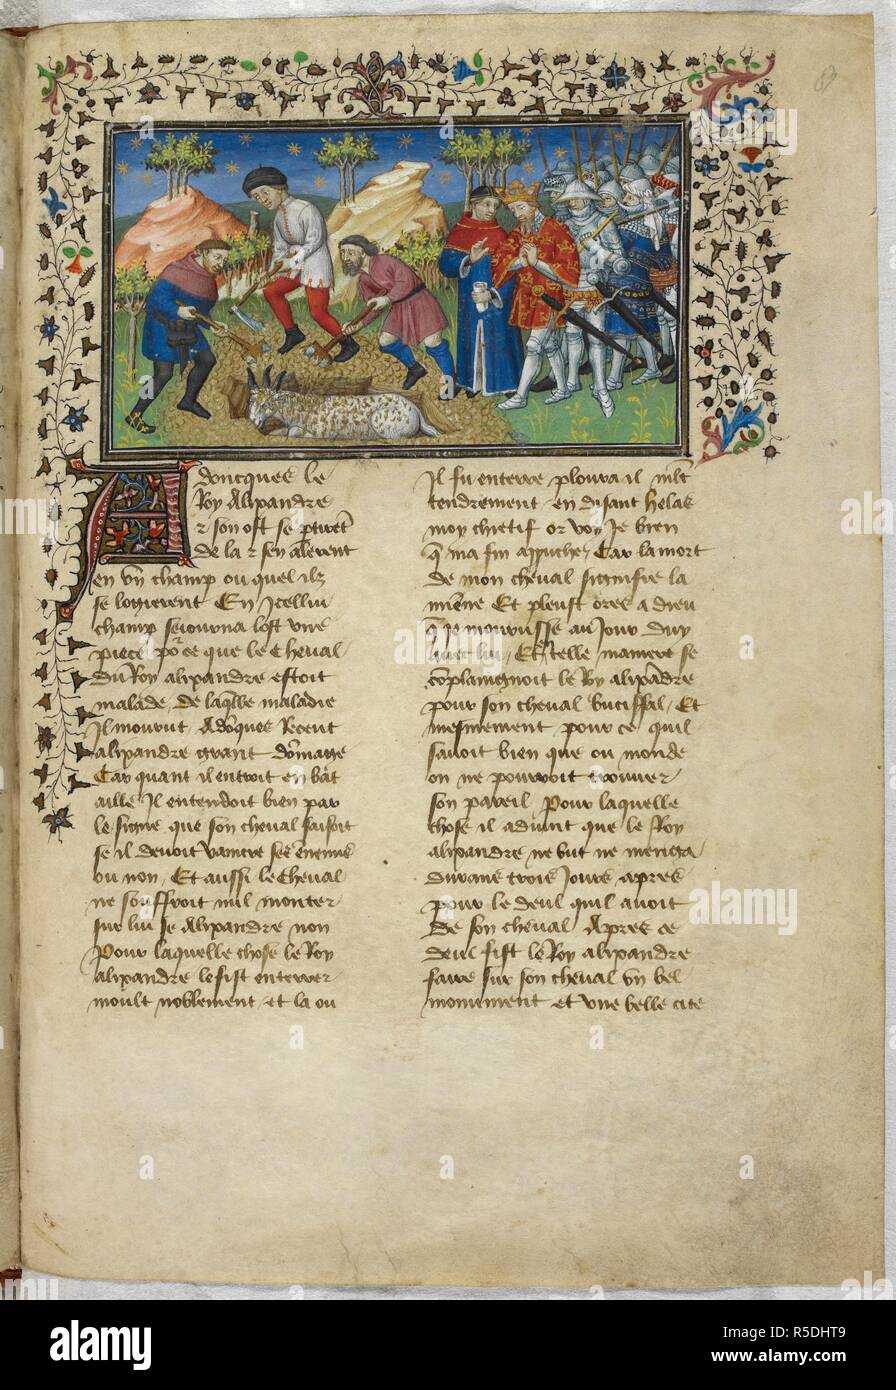 doncques le
Roy Alixandre
⁊ son ost se ꝑtirēt
de la ⁊ sen alerent
en vng champ ou quel ilz
se logierent En Icellui
champ seiourna lost vne
piece pͬ ce que le cheval
du Roy alixandre estoit
malade de laq̄lle maladie
Il mourut Adōques Receut
alixandre grant dōmage
Car quant il entroit en bāt
aille Il entendoit bien par
le signe que son cheval faisoit
se il deuoit vaincre ses enemis
ou non Et aussi le cheval
ne souffroit nul monter
sur lui se Alixandre non
Pour laquelle chose le Roy
alixandre le fist enterrer
moult noblement et la ou
Il fu enterre ploura il mlt̄
tendrement en disant helas
moy chetif or voy Je bien
q̄ ma fin approche Car la mort
de mon cheval signifie la
mienne Et pleust ores a dieu
q̄ Je mourusse au Jour duy
avec lui Et telle maniere se
cōplaingnoit le Roy alixādre
pour son cheval Buciffal Et
mesmement pour ce quil
sauoit bien que ou monde
on ne pourroit trouuer
son pareil Pour laquelle
chose il aduint que le Roy
alixandre ne but ne menga
durant trois Jours apres
pour le deul quil auoit
de son cheval Apres ce
deul fist le Roy alixandre
faire sur son cheval vn bel
monument et vne belle cite
alamy
alamy
Image ID: R5DHT9
www.alamy.com